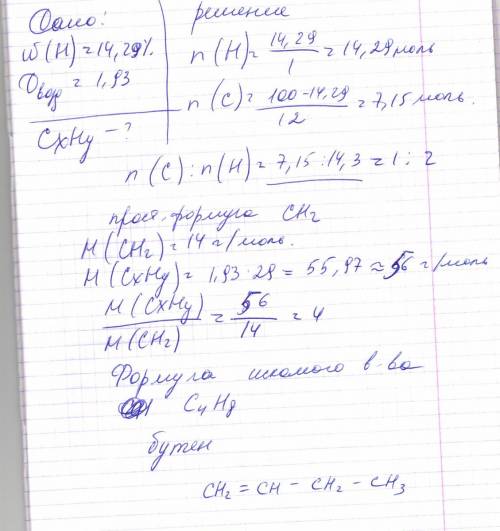 Дано:
ω(H) = 14,29%
Dвозд = 1,93
CxHy - ?
решение
n(H) = 14,29 / 1 = 14,29 моль
n(C) = 100-14,29 / 12 = 7,15 моль.
n(C) : n(H) = 7,15 : 14,3 = 1 : 2
прост. формула CH₂
M(CH₂) = 14 г/моль.
M(CxHy) = 1,93 · 29 = 55,97 ≈ 56 г/моль
M(CxHy) / M(CH₂) = 56 / 14 = 4
Формула искомого в-ва
C₄H₈
бутен
CH₂ = CH - CH₂ - CH₃